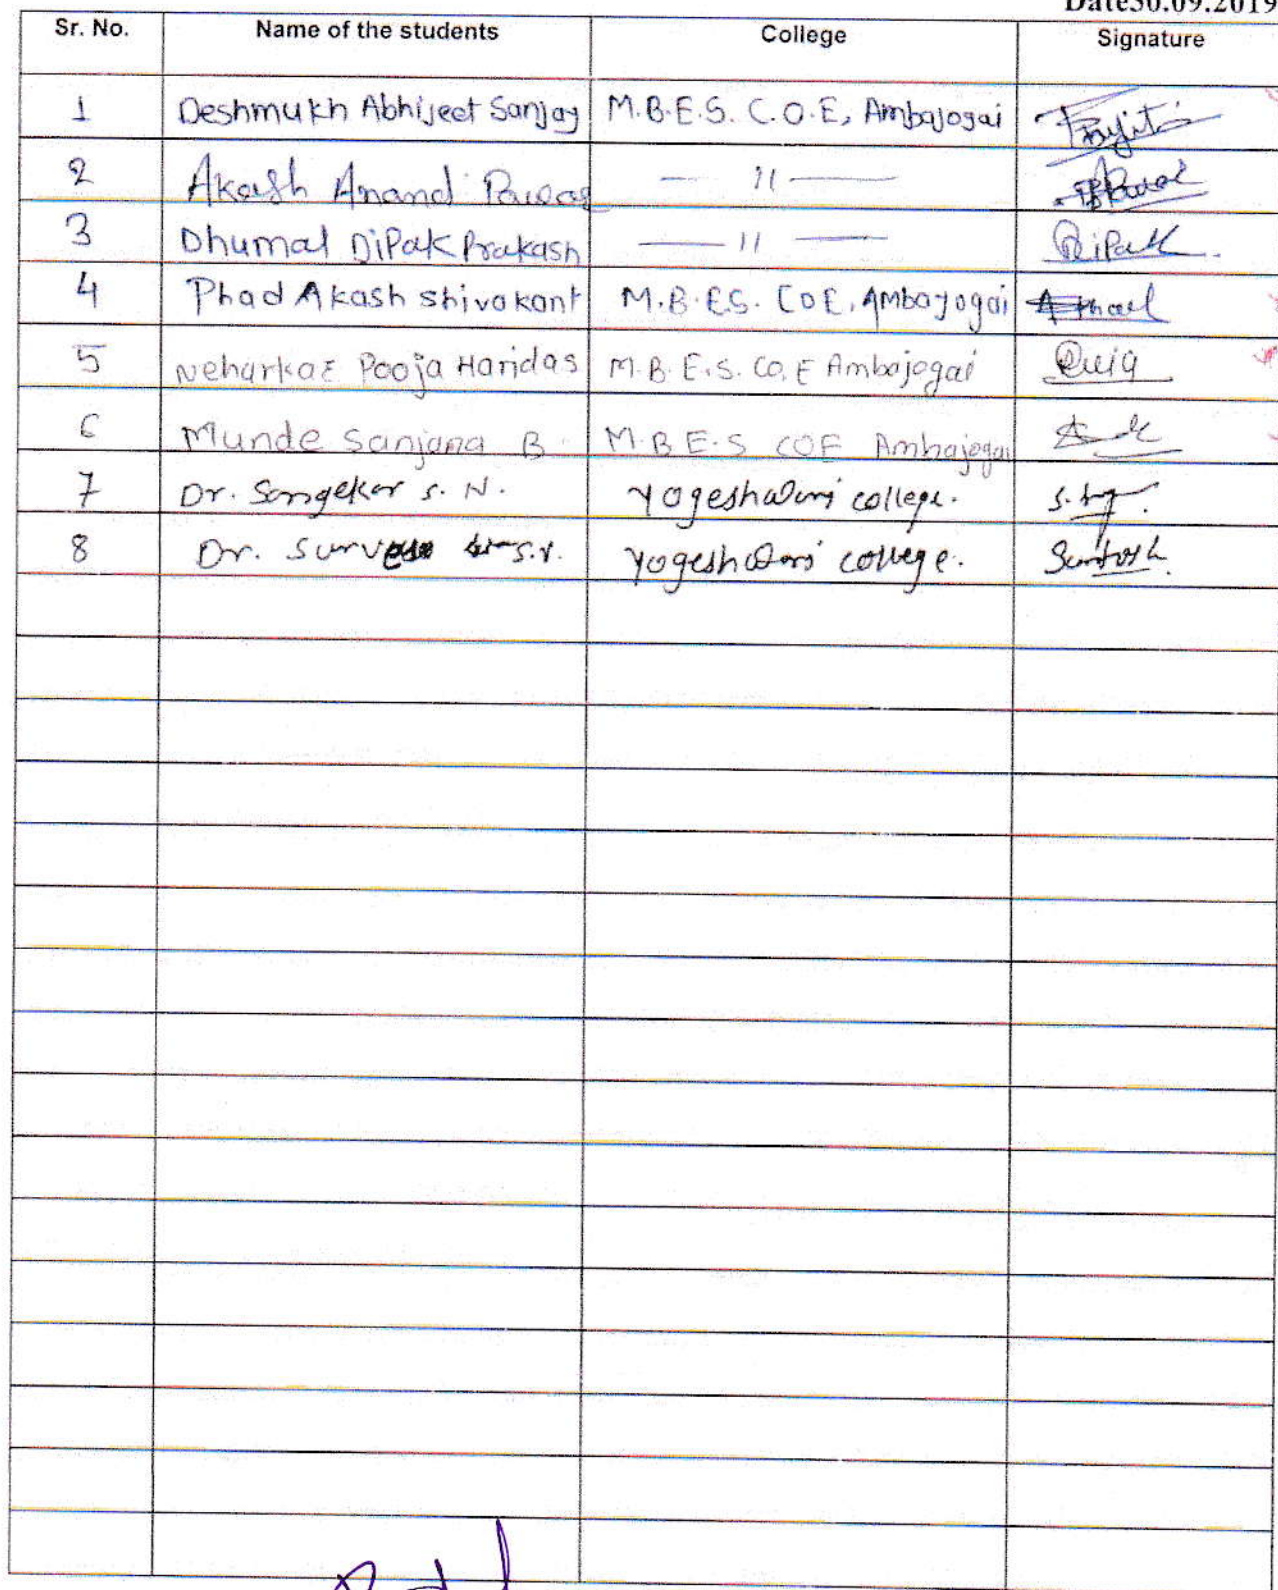 Date30.09.2019
Sr. No. Name of the students College Signature
1 Deshmukh Abhijeet Sanjay M.B.E.S. C.O.E, Ambajogai
2 Akash Anand Pawar — 11 —
3 Dhumal DiPak Prakash — 11 — DiPak
4 Phad Akash shivakant M.B.ES. COE, Ambajogai
5 Neharkar Pooja Haridas M.B.E.S. CO.E Ambajogai
6 Munde Sanjana B. M.B.E.S COE Ambajogai
7 Dr. Sangekar S. N. Yogeshwari college.
8 Dr. Surv S.V. Yogeshwari college. Santosh